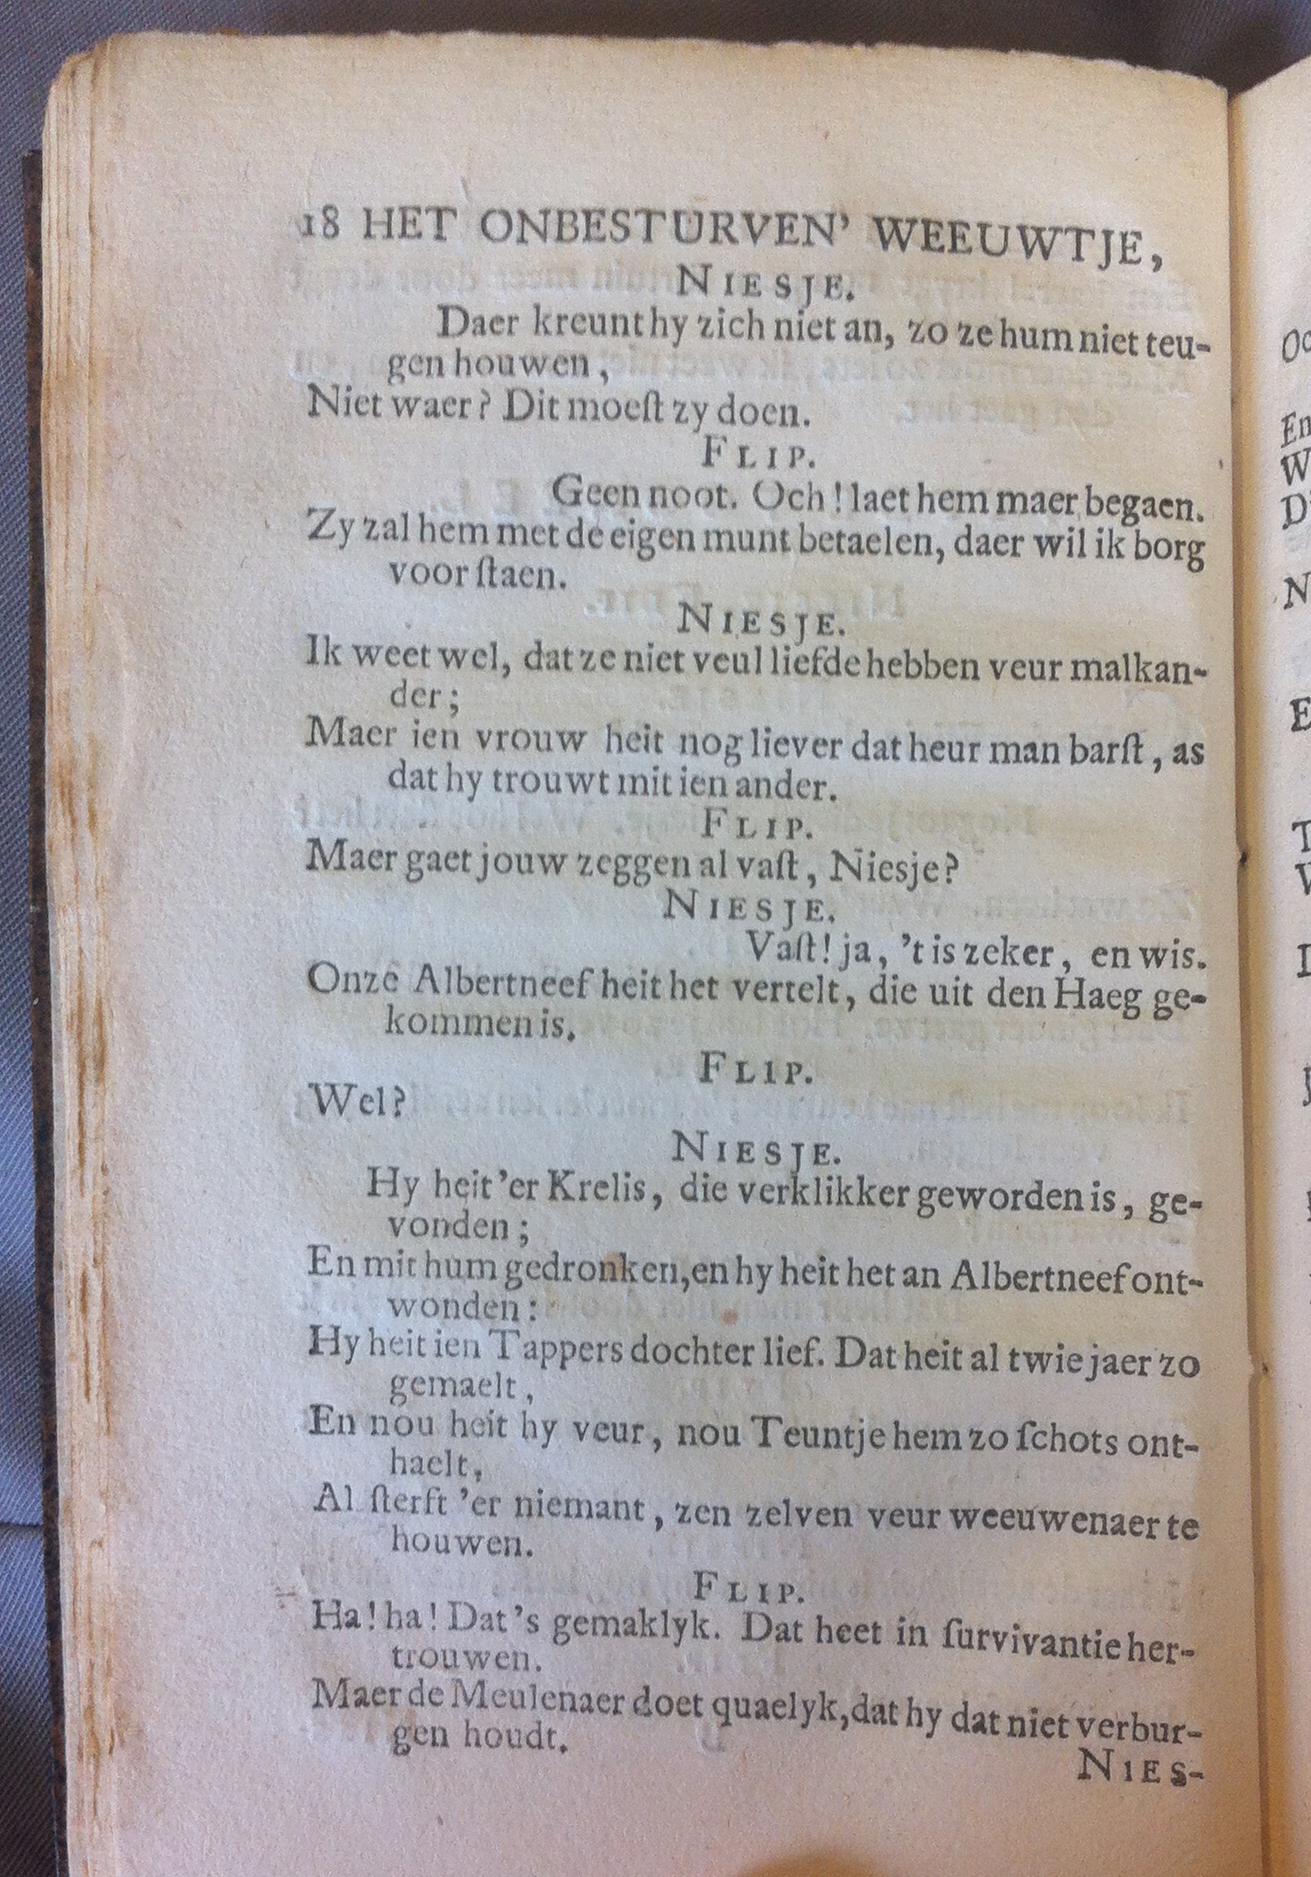 18 HET ONBESTURVEN' WEEUWTJE,
NIESJE.
Daer kreunt hy zich niet an, zo ze hum niet teu-
gen houwen,
Niet waer? Dit moeſt zy doen.
FLIP.
Geen noot. Och! laet hem maer begaen.
Zy zal hem met de eigen munt betaelen, daer wil ik borg
voor ſtaen.
NIESJE.
Ik weet wel, dat ze niet veul liefde hebben veur malkan-
der;
Maer ien vrouw heit nog liever dat heur man barſt, as
dat hy trouwt mit ien ander.
FLIP.
Maer gaet jouw zeggen al vaſt, Niesje?
NIESJE.
Vaſt! ja, 't is zeker, en wis.
Onze Albertneef heit het vertelt, die uit den Haeg ge-
kommen is.
FLIP.
Wel?
NIESJE.
Hy heit 'er Krelis, die verklikker geworden is, ge-
vonden;
En mit hum gedronken, en hy heit het an Albertneef ont-
wonden:
Hy heit ien Tappers dochter lief. Dat heit al twie jaer zo
gemaelt,
En nou heit hy veur, nou Teuntje hem zo ſchots ont-
haelt,
Al ſterft 'er niemant, zen zelven veur weeuwenaer te
houwen.
FLIP.
Ha! ha! Dat's gemaklyk. Dat heet in ſurvivantie her-
trouwen.
Maer de Meulenaer doet quaelyk, dat hy dat niet verbur-
gen houdt.
NIES-
Oc
En
W
D
N
E
T